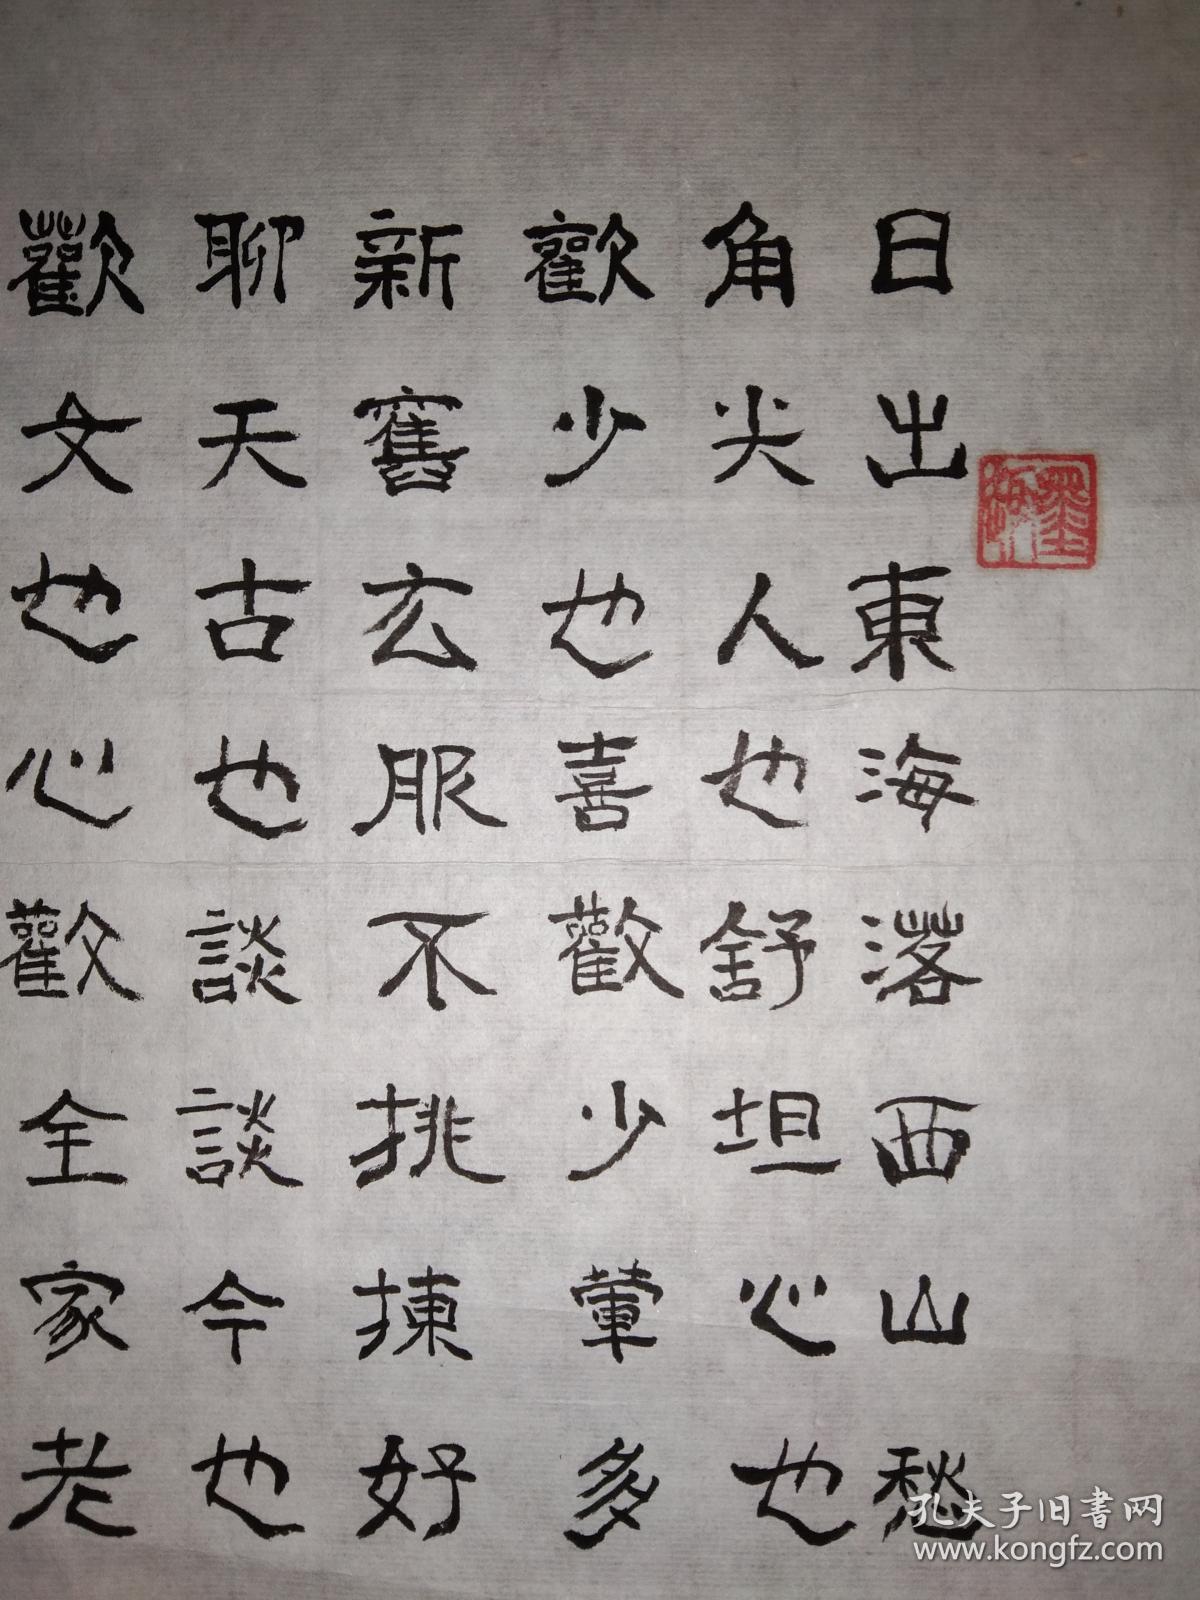 日出東海落西山愁
角尖人也舒坦心也
歡少也喜歡少葷多
新舊衣服不挑揀好
聊天古也談談今也
歡文也心歡全家老
孔夫子旧書网
www.kongfz.com